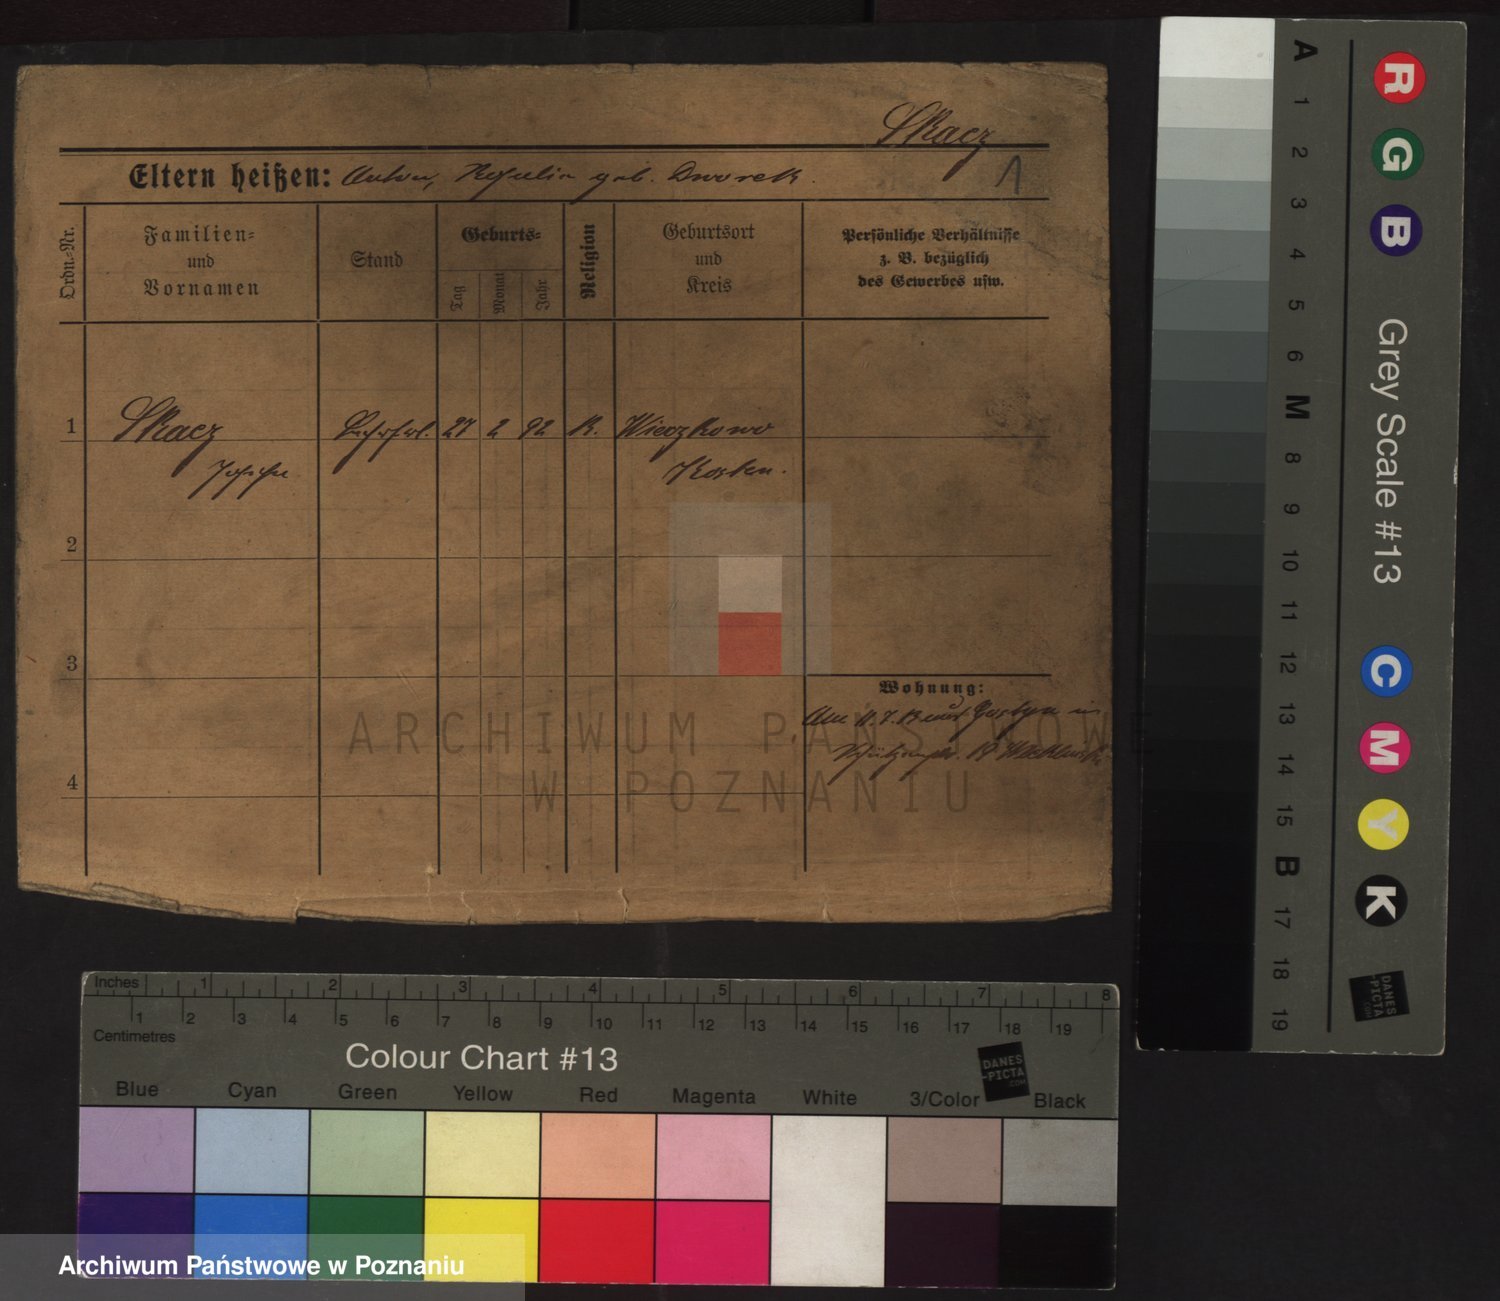 Skacz
Eltern heißen: Anton, geb. Dworek.
1
Ordn.-Nr.
Familien-
und
Vornamen
Stand
Geburts-
Tag
Monat
Jahr
Religion
Geburtsort
und
Kreis
Persönliche Verhältnisse
z. B. bezüglich
des Gewerbes usw.
1 Skacz 27 2 92 K. Wieczkowo
Kosten.
2
3
Wohnung:
4
ARCHIWUM PAŃSTWOWE
W POZNANIU
Inches 1 2 3 4 5 6 7 8
1 2 3 4 5 6 7 8 9 10 11 12 13 14 15 16 17 18 19
Centimetres
Colour Chart #13
DANES
-PICTA
.COM
Blue Cyan Green Yellow Red Magenta White 3/Color Black
Archiwum Państwowe w Poznaniu
A 1 2 3 4 5 6 M 8 9 10 11 12 13 14 15 B 17 18 19
R G B Grey Scale #13 C M Y K
DANES
-PICTA
.COM